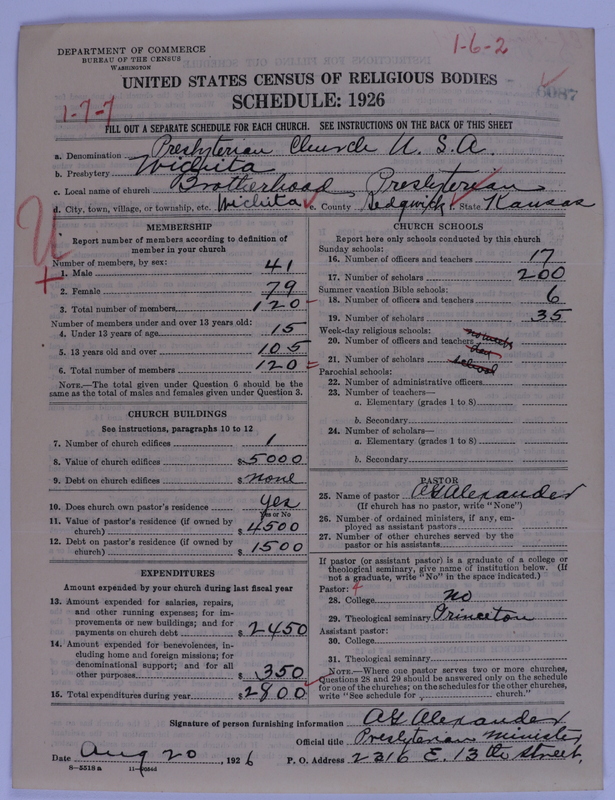 DEPARTMENT OF COMMERCE
BUREAU OF THE CENSUS
WASHINGTON
1-6-2
UNITED STATES CENSUS OF RELIGIOUS BODIES
SCHEDULE: 1926
1-7-7
FILL OUT A SEPARATE SCHEDULE FOR EACH CHURCH. SEE INSTRUCTIONS ON THE BACK OF THIS SHEET
a. Denomination Presbyterian Church U.S.A.
b. Presbytery Wichita
c. Local name of church Brotherhood Presbyterian
d. City, town, village, or township, etc. Wichita e. County Sedgwick f. State Kansas
MEMBERSHIP
Report number of members according to definition of
member in your church
Number of members, by sex:
1. Male 41
2. Female 79
3. Total number of members 120
Number of members under and over 13 years old:
4. Under 13 years of age 15
5. 13 years old and over 105
6. Total number of members 120
NOTE.—The total given under Question 6 should be the
same as the total of males and females given under Question 3.
CHURCH BUILDINGS
See instructions, paragraphs 10 to 12
7. Number of church edifices 1
8. Value of church edifices $5000
9. Debt on church edifices $none
10. Does church own pastor's residence Yes
Yes or No
11. Value of pastor's residence (if owned by
church) $4500
12. Debt on pastor's residence (if owned by
church) $1500
EXPENDITURES
Amount expended by your church during last fiscal year
13. Amount expended for salaries, repairs,
and other running expenses; for im-
provements or new buildings; and for
payments on church debt $2450
14. Amount expended for benevolences, in-
cluding home and foreign missions; for
denominational support; and for all
other purposes $350
15. Total expenditures during year $2800
CHURCH SCHOOLS
Report here only schools conducted by this church
Sunday schools:
16. Number of officers and teachers 17
17. Number of scholars 200
Summer vacation Bible schools:
18. Number of officers and teachers 6
19. Number of scholars 35
Week-day religious schools:
20. Number of officers and teachers
21. Number of scholars school
Parochial schools:
22. Number of administrative officers
23. Number of teachers—
a. Elementary (grades 1 to 8)
b. Secondary
24. Number of scholars—
a. Elementary (grades 1 to 8)
b. Secondary
PASTOR
25. Name of pastor AG Alexander
(If church has no pastor, write "None")
26. Number of ordained ministers, if any, em-
ployed as assistant pastors
27. Number of other churches served by the
pastor or his assistants
If pastor (or assistant pastor) is a graduate of a college or
theological seminary, give name of institution below. (If
not a graduate, write "No" in the space indicated.)
Pastor:
28. College no
29. Theological seminary Princeton
Assistant pastor:
30. College
31. Theological seminary
NOTE.—Where one pastor serves two or more churches,
Questions 28 and 29 should be answered only on the schedule
for one of the churches; on the schedules for the other churches,
write "See schedule for church."
Signature of person furnishing information AG Alexander
Official title Presbyterian Minister
Date Aug 20, 1926 P. O. Address 2216 E. 13th Street.
8—5518 a